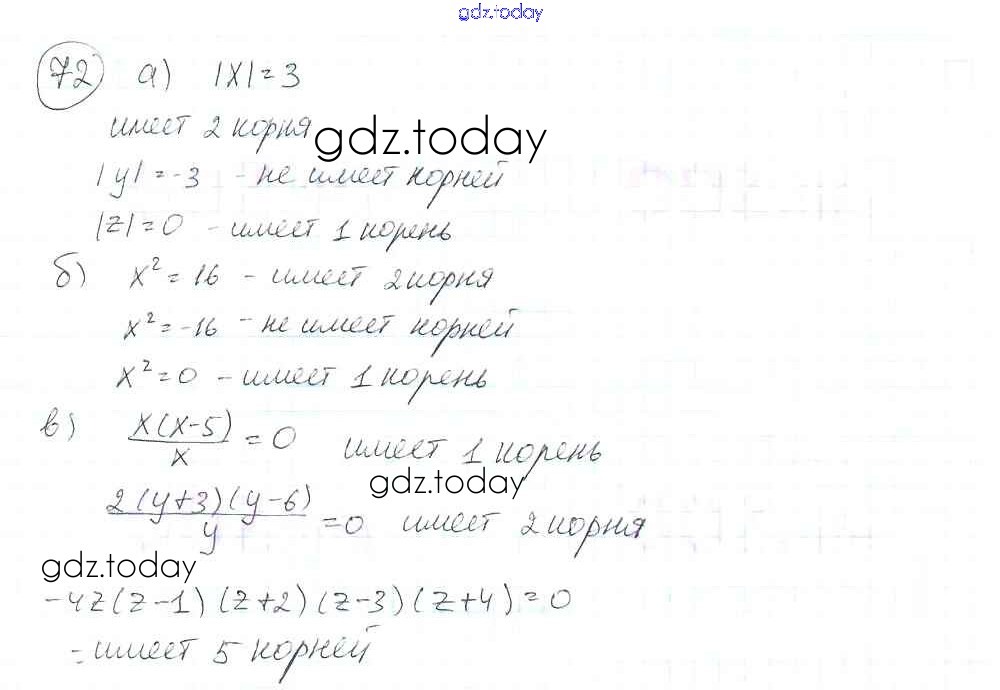 gdz.today
72 а) |x| = 3
имеет 2 корня
gdz.today
|y| = -3 - не имеет корней
|z| = 0 - имеет 1 корень
б) x² = 16 - имеет 2 корня
x² = -16 - не имеет корней
x² = 0 - имеет 1 корень
в) x(x-5)/x = 0 имеет 1 корень
gdz.today
2(y+3)(y-6)/y = 0 имеет 2 корня
gdz.today
-4z(z-1)(z+2)(z-3)(z+4) = 0
- имеет 5 корней